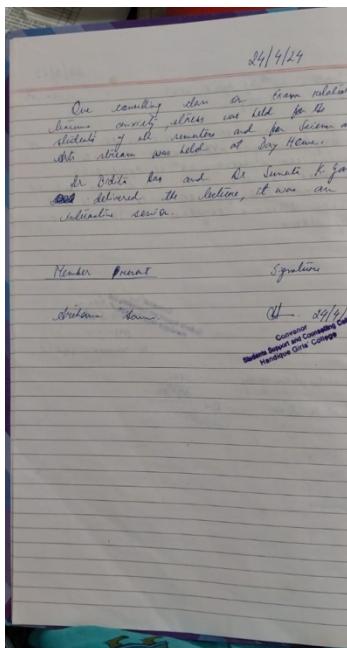 24/4/24
One counselling class on Exam related
anxiety, stress was held for the
students of all semesters and for Science
Arts stream was held at Day Home.
Dr Bidita Das and Dr Sunita K
delivered the lecture, it was an
interactive session.
Member Present
Signature
24/4/
Convenor
Students Support and Counselling Cell
Handique Girls' College